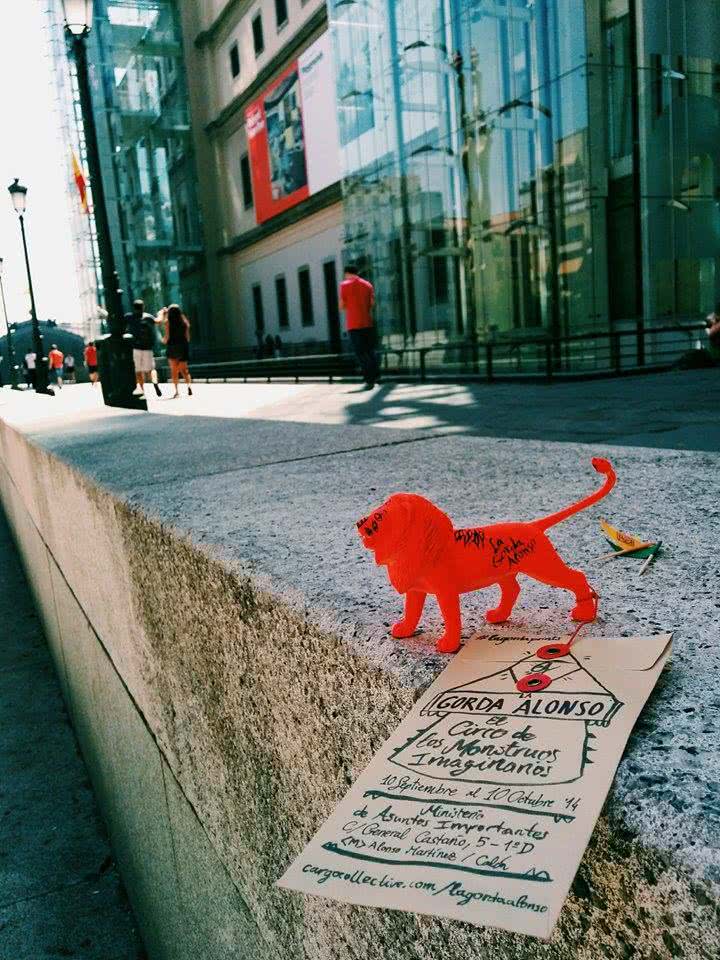 La
Gorda
Alonso
LA
GORDA ALONSO
El
Circo de
los Monstruos
Imaginarios
10 Septiembre al 10 Octubre '14
Ministerio
de Asuntos Importantes
C/ General Castaño, 5 - 1ºD
<M> Alonso Martínez / Colón
cargocollective.com/lagordaalonso